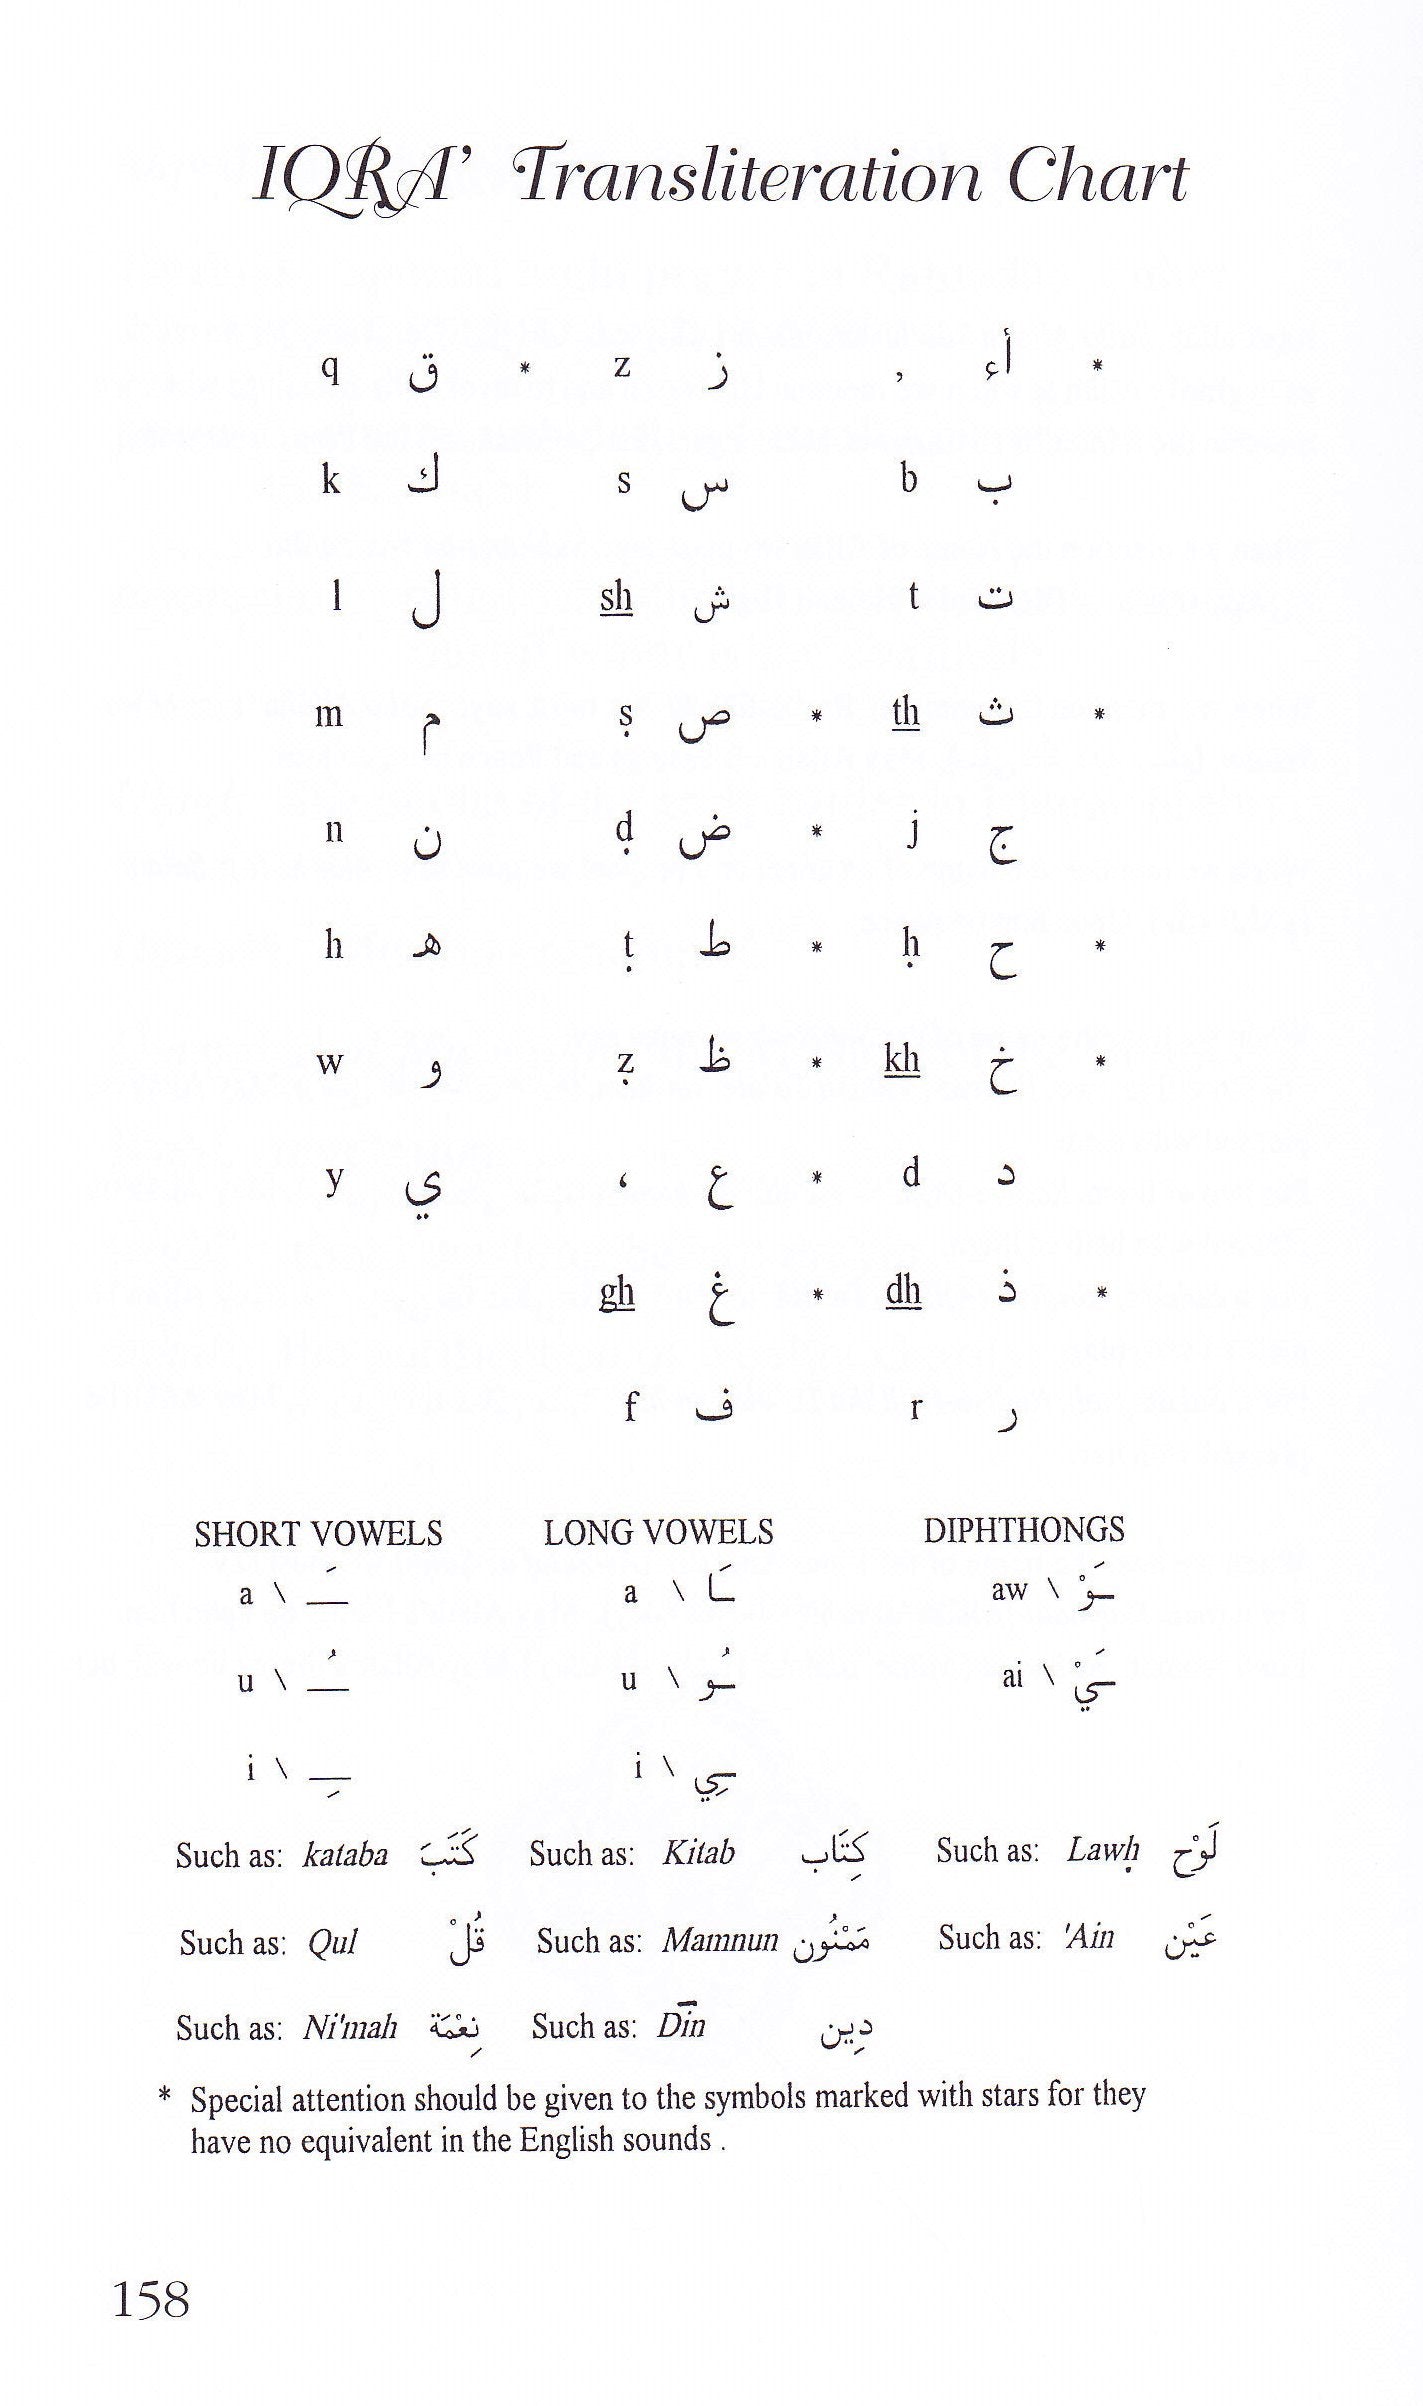 IQRA’ Transliteration Chart
q ق * z ز , أء *
k ك s س b ب
l ل sh ش t ت
m م ṣ ص * th ث *
n ن ḍ ض * j ج
h ه ṭ ط * ḥ ح *
w و ẓ ظ * kh خ *
y ي ‘ ع * d د
gh غ * dh ذ *
f ف r ر
SHORT VOWELS LONG VOWELS DIPHTHONGS
a \ ـَ a \ ـَا aw \ ـَوْ
u \ ـُ u \ ـُو ai \ ـَيْ
i \ ـِ i \ ـِي
Such as: kataba كَتَبَ Such as: Kitab كِتَاب Such as: Lawḥ لَوْح
Such as: Qul قُلْ Such as: Mamnun مَمْنُون Such as: 'Ain عَيْن
Such as: Ni'mah نِعْمَة Such as: Dīn دِين
* Special attention should be given to the symbols marked with stars for they
have no equivalent in the English sounds .
158